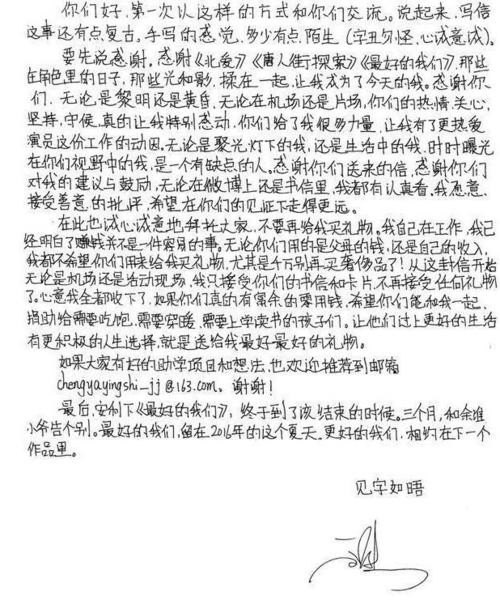 你们好,第一次以这样的方式和你们交流。说起来,写信
这事还有点复古,手写的感觉,多少有点陌生(字丑勿怪,心诚意诚)。
要先说感谢。感谢《北爱》《唐人街探案》《最好的我们》,那些
在角色里的日子,那些光和影,揉在一起,让我成为了今天的我。感谢你
们,无论是黎明还是黄昏,无论在机场还是片场,你们的热情,关心,
坚持,守候,真的让我特别感动,你们给了我很多力量,让我有了更热爱
演员这份工作的动因。无论是聚光灯下的我,还是生活中的我,时时曝光
在你们视野中的我,是一个有缺点的人。感谢你们送来的信,感谢你们
对我的建议与鼓励,无论在微博上还是书信里,我都有认真看。我愿意
接受善意的批评,希望在你们的见证下走得更远。
在此也诚心诚意地拜托大家,不要再给我买礼物。我自己在工作,我已
经明白了赚钱并不是一件容易的事。无论你们用的是父母的钱,还是自己的收入,
我都不希望你们用来给我买礼物,尤其是千万别再买奢侈品了!从这封信开始
无论是机场还是活动现场,我只接受你们的书信和卡片,不再接受任何礼物
了。心意我全都收下了,如果你们真的有富余的零用钱,希望你们能和我一起,
捐助给需要吃饱,需要穿暖,需要上学读书的孩子们。让他们过上更好的生活
有更积极的人生选择,就是送给我最好最好的礼物。
如果大家有好的助学项目和想法,也欢迎推荐到邮箱
chengyayingshi_jj@163.com。谢谢!
最后,安利下《最好的我们》,终于到了该结束的时候。三个月,和余淮
小爷告个别。最好的我们,留在2016年的这个夏天。更好的我们,相约在下一个
作品里。
见字如晤